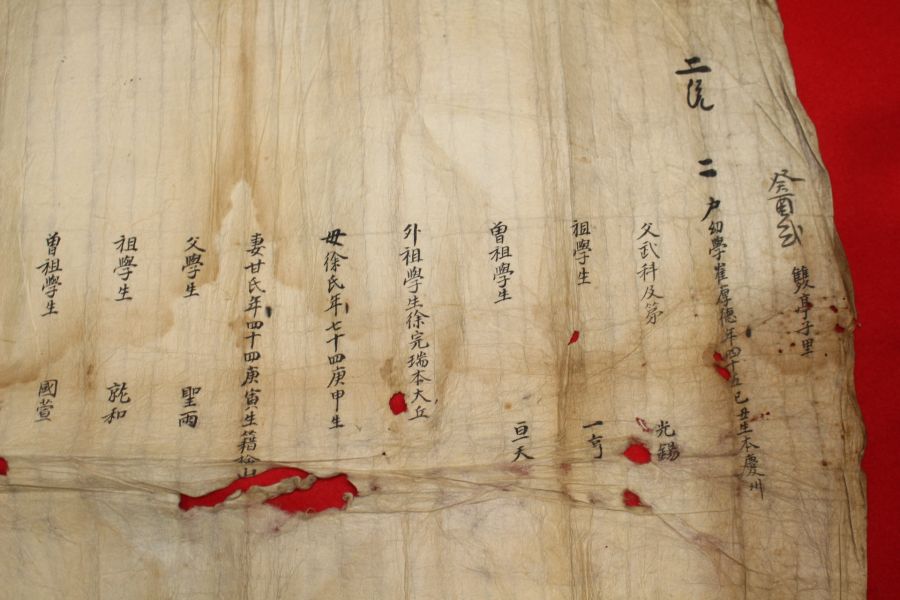 癸酉式 雙亭子里
二統 二戶 幼學崔厚德年四十五己丑生本慶州
父武科及第 光錫
祖學生 一亨
曾祖學生 亘天
外祖學生徐完瑞本大丘
母徐氏年七十四庚申生
妻甘氏年四十四庚寅生籍
父學生 聖雨
祖學生 就和
曾祖學生 國萱